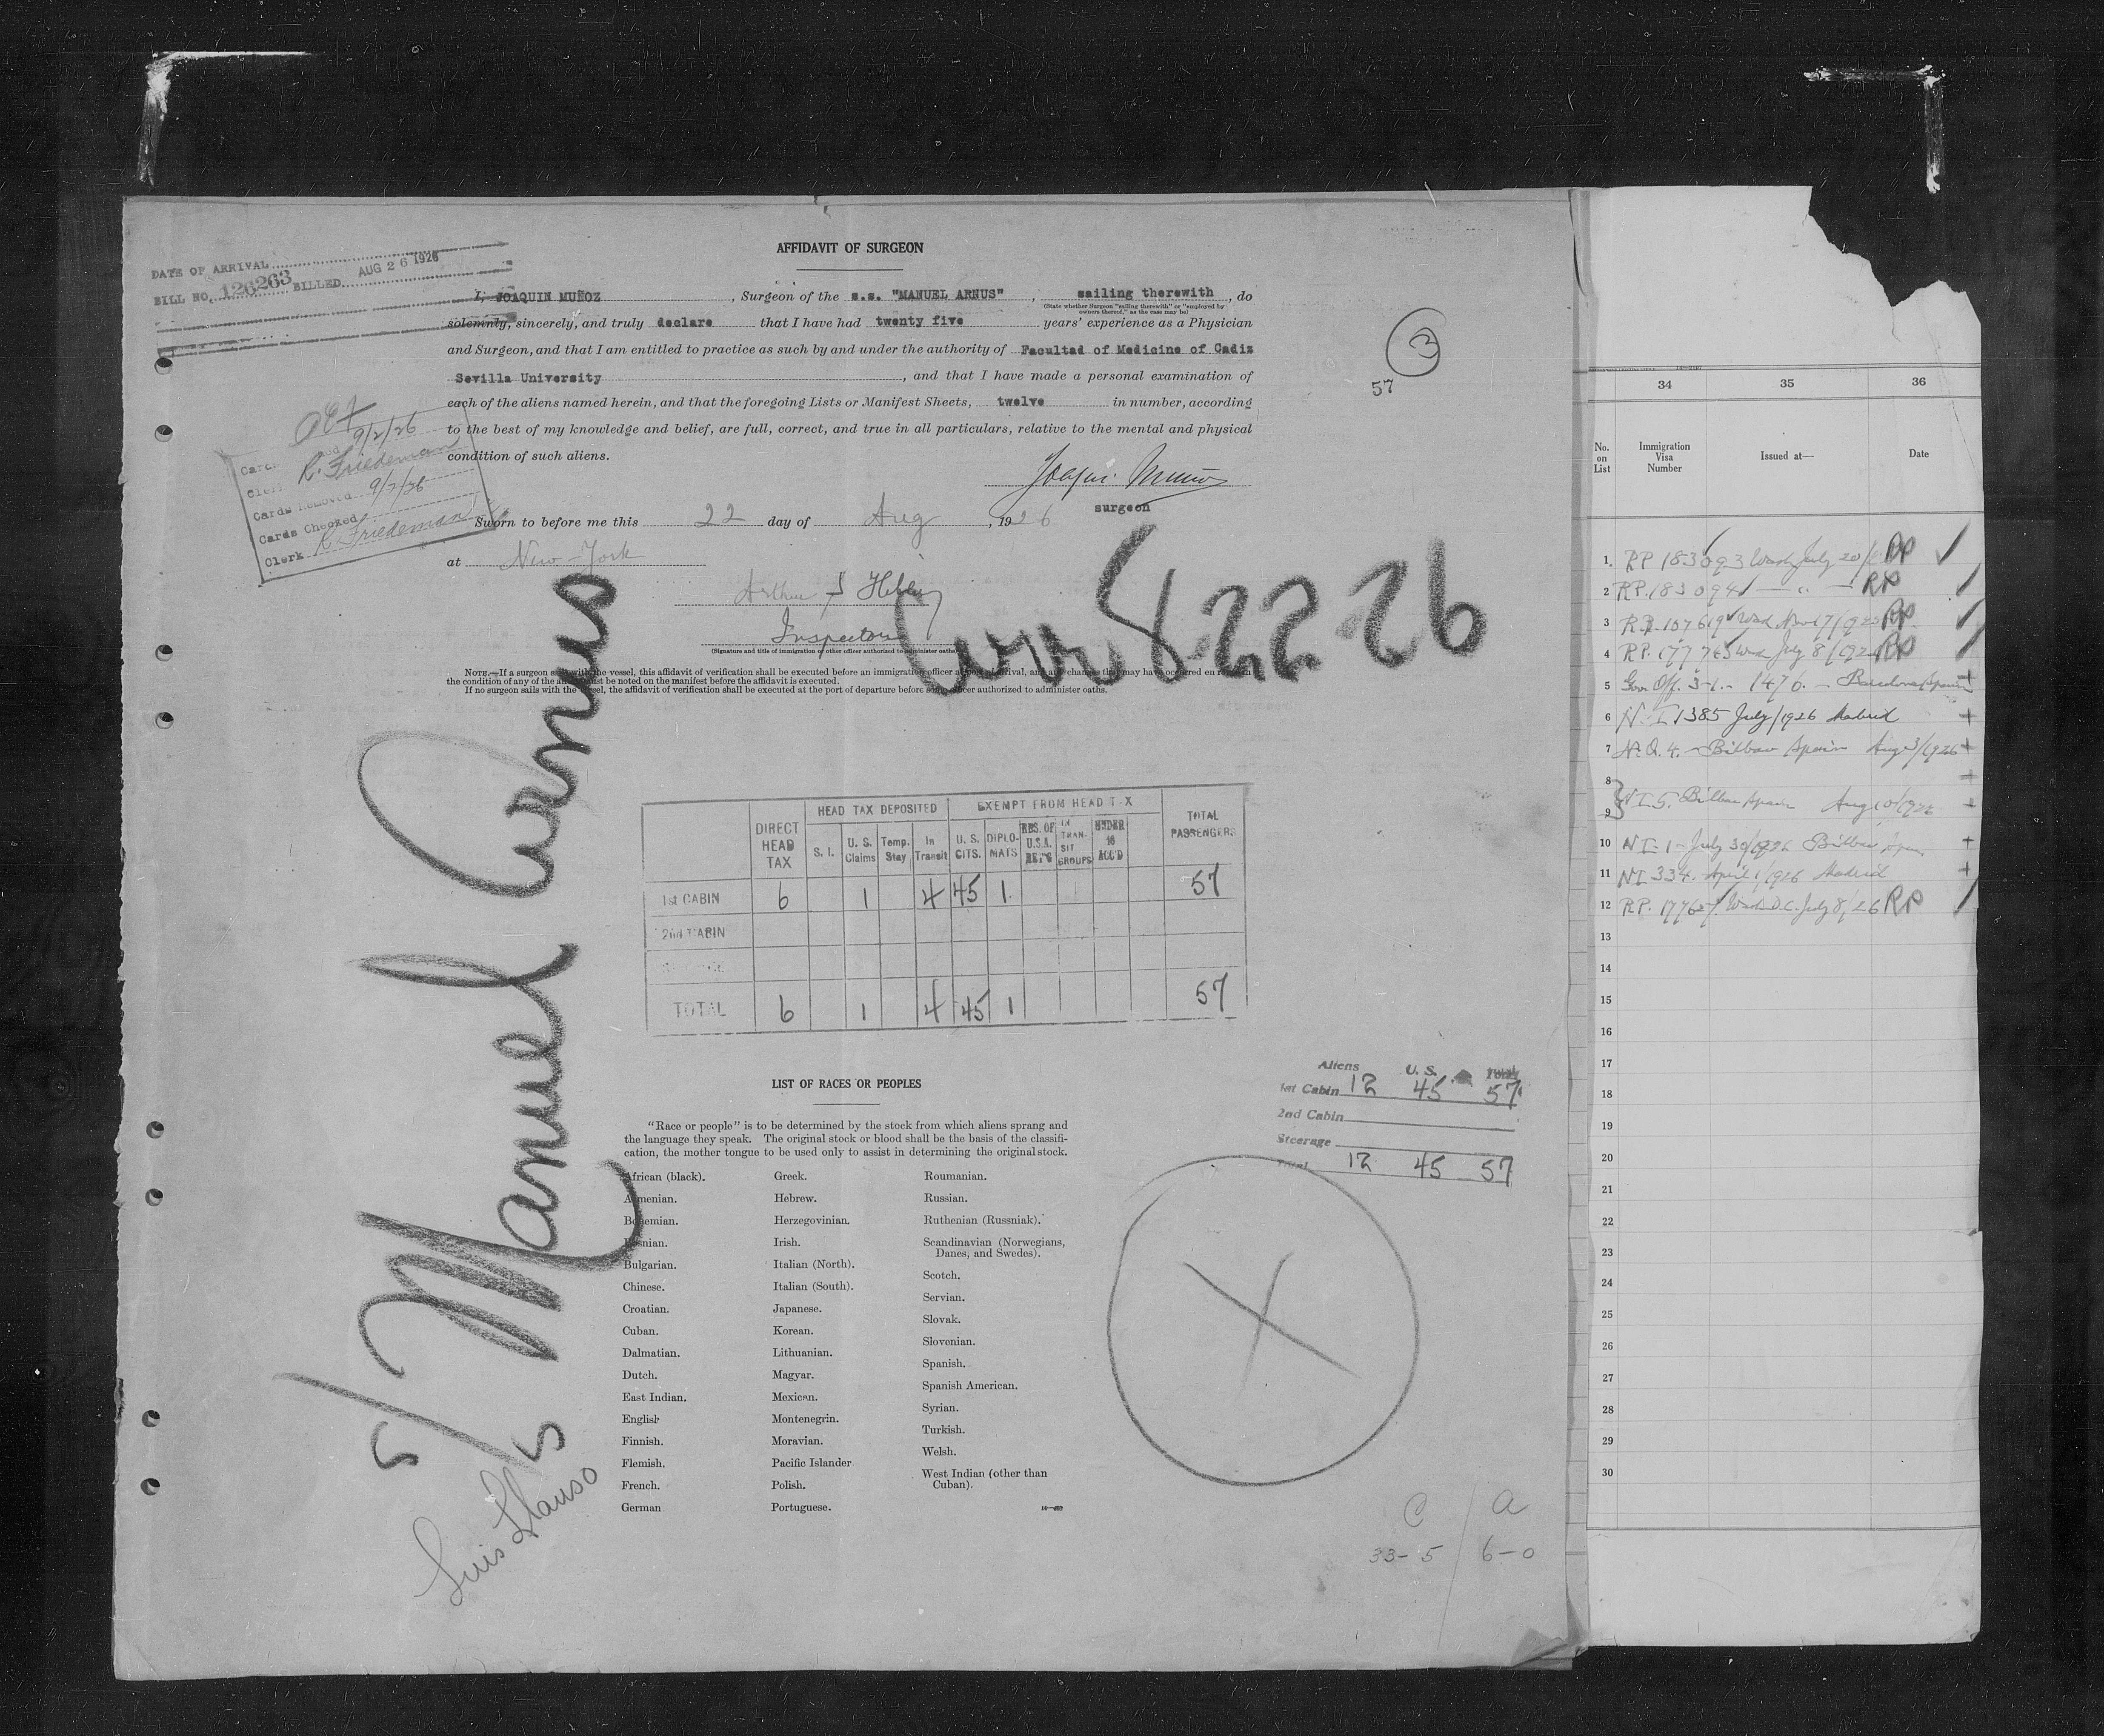 AFFIDAVIT OF SURGEON
DATE OF ARRIVAL
BILL NO. 126263 BILLED AUG 26 1926
I, JOAQUIN MUÑOZ, Surgeon of the s.s. "MANUEL ARNUS", sailing therewith, do
(State whether Surgeon "sailing therewith" or "employed by
owners thereof," as the case may be)
solemnly, sincerely, and truly declare that I have had twenty five years' experience as a Physician
and Surgeon, and that I am entitled to practice as such by and under the authority of Facultad of Medicine of Cadiz
Sevilla University, and that I have made a personal examination of
each of the aliens named herein, and that the foregoing Lists or Manifest Sheets, twelve in number, according
to the best of my knowledge and belief, are full, correct, and true in all particulars, relative to the mental and physical
condition of such aliens.
3
57
9/2/26
R. Friedeman
Cards Removed 9/2/26
Cards Checked
Clerk R. Friedeman
surgeon
Sworn to before me this 22 day of Aug, 1926
at New-York
Arthur
Inspector
(Signature and title of immigration or other officer authorized to administer oaths)
Arr 8 22 26
NOTE.—If a surgeon sails with the vessel, this affidavit of verification shall be executed before an immigration officer at port of arrival, and any changes that may have occurred en
the condition of any of the aliens must be noted on the manifest before the affidavit is executed.
If no surgeon sails with the vessel, the affidavit of verification shall be executed at the port of departure before some officer authorized to administer oaths.
S/S Manuel Arnus
Luis Llauso
DIRECT HEAD TAX
HEAD TAX DEPOSITED
EXEMPT FROM HEAD TAX
TOTAL PASSENGERS
S. I.
U. S. Claims
Temp. Stay
In Transit
U. S. CITS.
DIPLOMATS
RES. OF U.S.A. RET'G
IN TRANSIT GROUPS
UNDER 16 ACC'D
1st CABIN 6 1 4 45 1 57
2nd CABIN
TOTAL 6 1 4 45 1 57
Aliens U. S. Total
1st Cabin 12 45 57
2nd Cabin
Steerage
Total 12 45 57
LIST OF RACES OR PEOPLES
"Race or people" is to be determined by the stock from which aliens sprang and
the language they speak. The original stock or blood shall be the basis of the classifi-
cation, the mother tongue to be used only to assist in determining the original stock.
African (black).
Armenian.
Bohemian.
Bosnian.
Bulgarian.
Chinese.
Croatian.
Cuban.
Dalmatian.
Dutch.
East Indian.
English
Finnish.
Flemish.
French.
German
Greek.
Hebrew.
Herzegovinian.
Irish.
Italian (North).
Italian (South).
Japanese.
Korean.
Lithuanian.
Magyar.
Mexican.
Montenegrin.
Moravian.
Pacific Islander
Polish.
Portuguese.
Roumanian.
Russian.
Ruthenian (Russniak).
Scandinavian (Norwegians,
Danes, and Swedes).
Scotch.
Servian.
Slovak.
Slovenian.
Spanish.
Spanish American.
Syrian.
Turkish.
Welsh.
West Indian (other than
Cuban).
C / a
33-5 / 6-0
34 35 36
No. on List
Immigration Visa Number
Issued at—
Date
1. RP 183093 Wash July 20 RP
2 RP. 183094 — " — RP
3 RP 107619 Wash Nov 17 RP
4 RP. 177765 Wash July 8 RP
5 Gov. Off. 3-1.- 1476. -
6 N-I 1385 July/1926 Madrid
7 N.Q. 4. - Bilbao Spain Aug 3/1926
8
9 N I-5. Bilbao Spain Aug 10/1926
10 NI-1- July 30/1926 Bilbao Spain
11 NI 334. April 1/1926 Madrid
12 RP. 17762 Wash D.C. July 8/26 RP
13
14
15
16
17
18
19
20
21
22
23
24
25
26
27
28
29
30